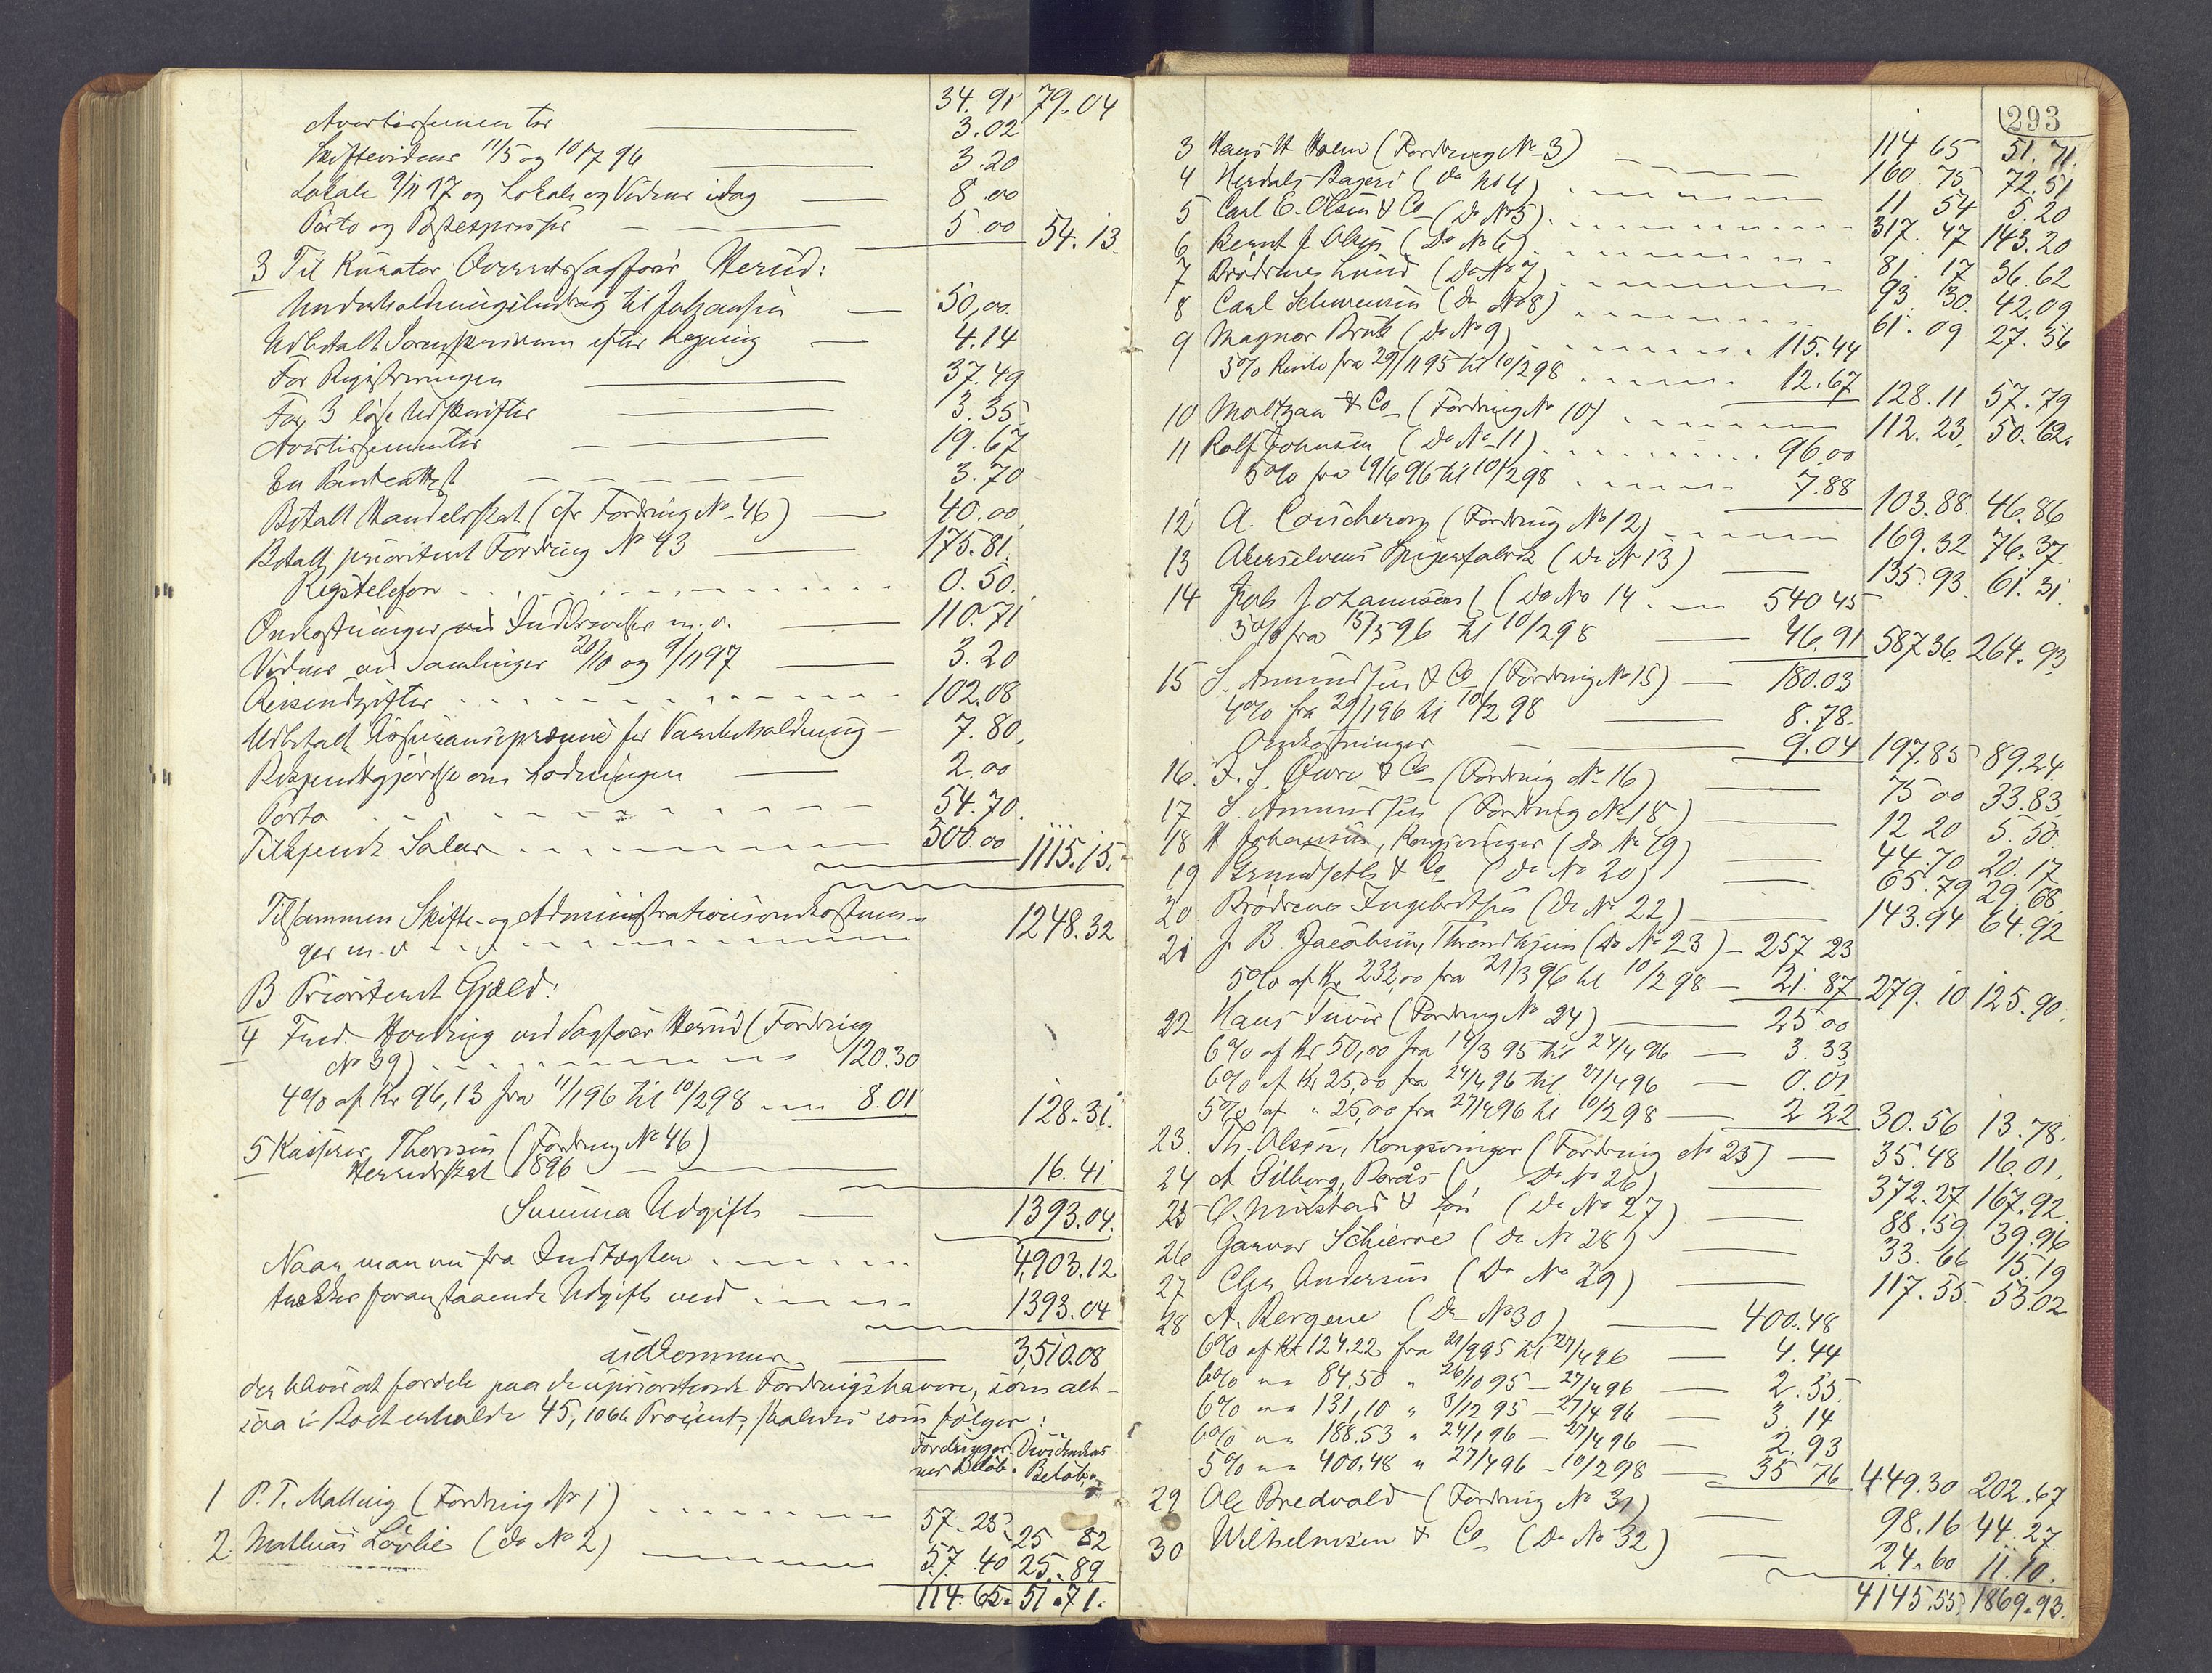 34.91 79.04
Avertissementer 3.02
Skiftevidner 11/5 og 10/7 96 3.20
Lokale 9/11 97 og Lokale og Vidner idag 8.00
Porto og Postexpresser 5.00 54.13
3 Til Kurator Overretssagfører Herud:
Underholdningsbidrag til Johansen 50,00
Udbetalt Sorenskriveren efter Regning 4.14
For Registreringen 37.49
For 3 løse Udskrifter 3.35
Avertissementer 19.67
En Panteattest 3.70
Betalt Handelsskat (cfr Fordring No 46) 40.00
Betalt prioritert Fordring No 43 175.81
Rigstelefon 0.50
Omkostninger ved Inddrivelse m.v. 110.71
Vidner ved Samlinger 20/10 og 9/11 97 3.20
Reiseudgifter 102.08
Udbetalt Assurancepræmie for Varebeholdning 7.80
Bekjendtgjørelse om Lodningen 2.00
Porto 54.70
Tilkjendt Salær 500.00 1115.15
Tilsammen Skifte- og Administrationsomkostnin-
ger m.v 1248.32
B Prioritert Gjæld:
4 Fred. Hovding ved Sagfører Herud (Fordring
No 39) 120.30
4% af Kr 96,13 fra 11/1 96 til 10/2 98 8.01 128.31
5 Kasserer Thoresen (Fordring No 46)
Herredsskat 1896 16.41
Summa Udgift 1393.04
Naar man nu fra Indtægten 4,903.12
trækker foranstaaende Udgift med 1393.04
udkommer 3,510.08
der bliver at fordele paa de upriorterede Fordringshavere, som alt-
saa i Lod erholde 45,1066 Procent, saaledes som følger:
Fordringer- Dividendens
nes Beløb. Beløb
1 P. T. Malling (Fordring No 1) 57.25 25 82
2. Mathias Løvlie (do No 2) 57.40 25.89
114.65 51.71.
293
114 65 51.71.
3 Hans H Holm (Fordring No 3) 160.75 72.51
4 Herdals Bageri (do No 4) 11 54 5.20
5 Carl E. Olsen & Co (Do No 5) 317.47 143.20
6 Bernt J. Olsen (Do No 6) 81.17 36.62
7 Brødrene Lund (Do No 7) 93.30 42.09
8 Carl Schwensen (Do No 8) 61.09 27.56
9 Magnor Brug (do No 9) 115.44
5% Rente fra 29/11 95 til 10/2 98 12.67 128.11 57.79
10 Moltzau & Co (Fordring No 10) 112.23 50.62
11 Rolf Johnsen (Do No 11) 96.00
5% fra 19/6 96 til 10/2 98 7.88 103.88 46.86
12 A. Coucheron (Fordring No 12) 169.32 76.37
13 Akerselvens Spigerfabrik (Do No 13) 135.93 61.31
14 Jacob Johannesen (Do No 14 540 45
5% fra 15/5 96 til 10/2 98 46.91 587 36. 264.93
15 S. Amundsen & Co (Fordring No 15) 180.03
4% fra 29/1 96 til 10/2 98 8.78
Omkostninger 9.04 197.85 89.24
16. F. S. Owre & Co (Fordring No 16) 75 00 33.83
17 S. Amundsen (Fordring No 18) 12 20 5.50
18 H Johansen, Kongsvinger (Do No 19) 44.70 20.17
19 Grundseth & Co (do No 20) 65.79 29.68
20 Brødrene Ingebretsen (Do No 22) 143.94 64.92
21 J. B. Jacobsen, Throndhjem (Do No 23) 257 23
5% af Kr. 232,00 fra 21/3 96 til 10/2 98 21.87 279.10 125.90
22 Hans Tuver (Fordring No 24) 25.00
6% af Kr 50,00 fra 14/3 95 til 24/4 96 3.33
6% af Kr 25,00 fra 24/4 96 til 27/4 96 0.01
5% af " 25,00 fra 27/4 96 til 10/2 98 2 22 30.56 13.78.
23. Th. Olsen, Kongsvinger (Fordring No 25) 35.48 16.01
24 A Gilberg, Røraas ( Do No 26) 372.27 167.92
25 O. Mustad & Søn (Do No 27) 88.59 39.96
26 Gunvor Schierve (do No 28) 33.66 15.19
27 Chr. Andersen (Do No 29) 117.55 53.02
28 A. Bergene (Do No 30) 400.48
6% af Kr 124.22 fra 21/9 95 til 27/4 96 4.44
6% " " 84.50 " 26/10 95 - 27/4 96 2.55
6% " " 131,10 " 3/12 95 - 27/4 96 3.14
6% " " 188.53 " 24/1 96 - 27/4 96 2.93
5% " " 400.48 " 27/4 96 - 10/2 98 35 76 449.30 202.67
29 Ole Bredvold (Fordring No 31) 98.16 44.27
30 Wilhelmsen & Co (Do No 32) 24.60 11.10
4145.55 1869.93